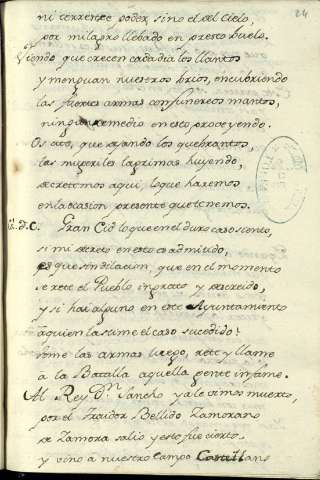 24
ni terrestre poder, sino el del Cielo,
por milagro llebado en presto buelo.
Viendo que crecen cada dia los llantos
y menguan nuestros brios, encubriendo
las fuertes armas con funereos mantos,
ningun remedio en esto proveyendo.
Os cito, que dejando los quebrantos,
las mugeriles lagrimas huyendo,
decretemos aqui, lo que haremos
en la ocasion presente que tenemos.
d. C. Gran Cid lo que en el duro caso siento,
si mi decreto en esto es admitido,
es que sin dilacion, que en el momento
se rete el Pueblo ingrato y descreido,
y si hai alguno en este Ayuntamiento
a quien lastime el caso sucedido:
tome las armas luego, rete y llame
a la Batalla aquella gente infame.
Al Rey Dn Sancho ya le vimos muerto,
por el traidor Bellido Zamorano
de Zamora salio y esto fue cierto
y vino a nuestro campo Castellano